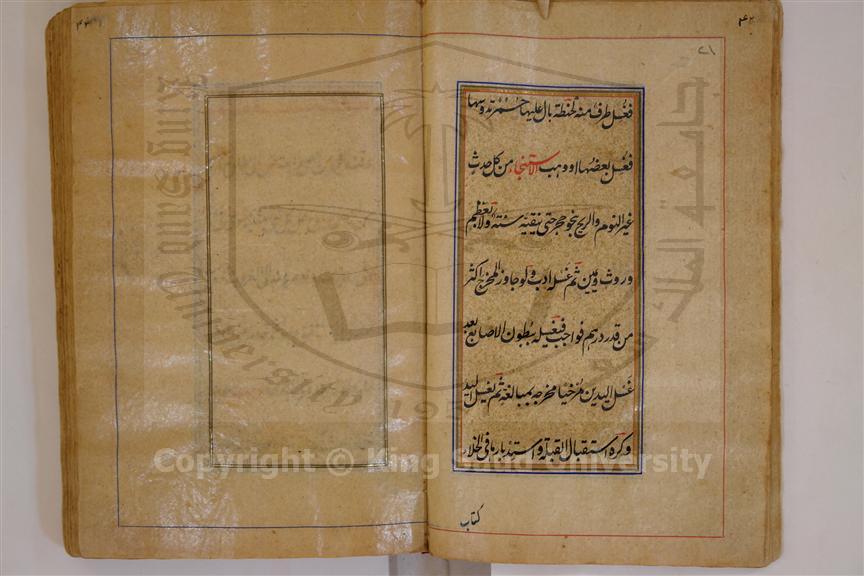 ۴۲
۲۱
فغسل طرف منه كحنطة بال عليها حمر تدوسها
فغسل بعضها او وهب الاستنجاء من كل حدث
غير النوم والريح بنحو حجر حتى ينقيه سنة ولا بعظم
وروث ويمين ثم غسله ادب ولو جاوز المخرج اكثر
من قدر درهم فواجب فيغسله ببطون الاصابع بعد
غسل اليدين مرخيا مخرجه بمبالغة ثم يغسل اليد
وكره استقبال القبلة واستدبارها في الخلاء
كتاب
جامعة الملك
King Saud University
195
Copyright © King Saud University